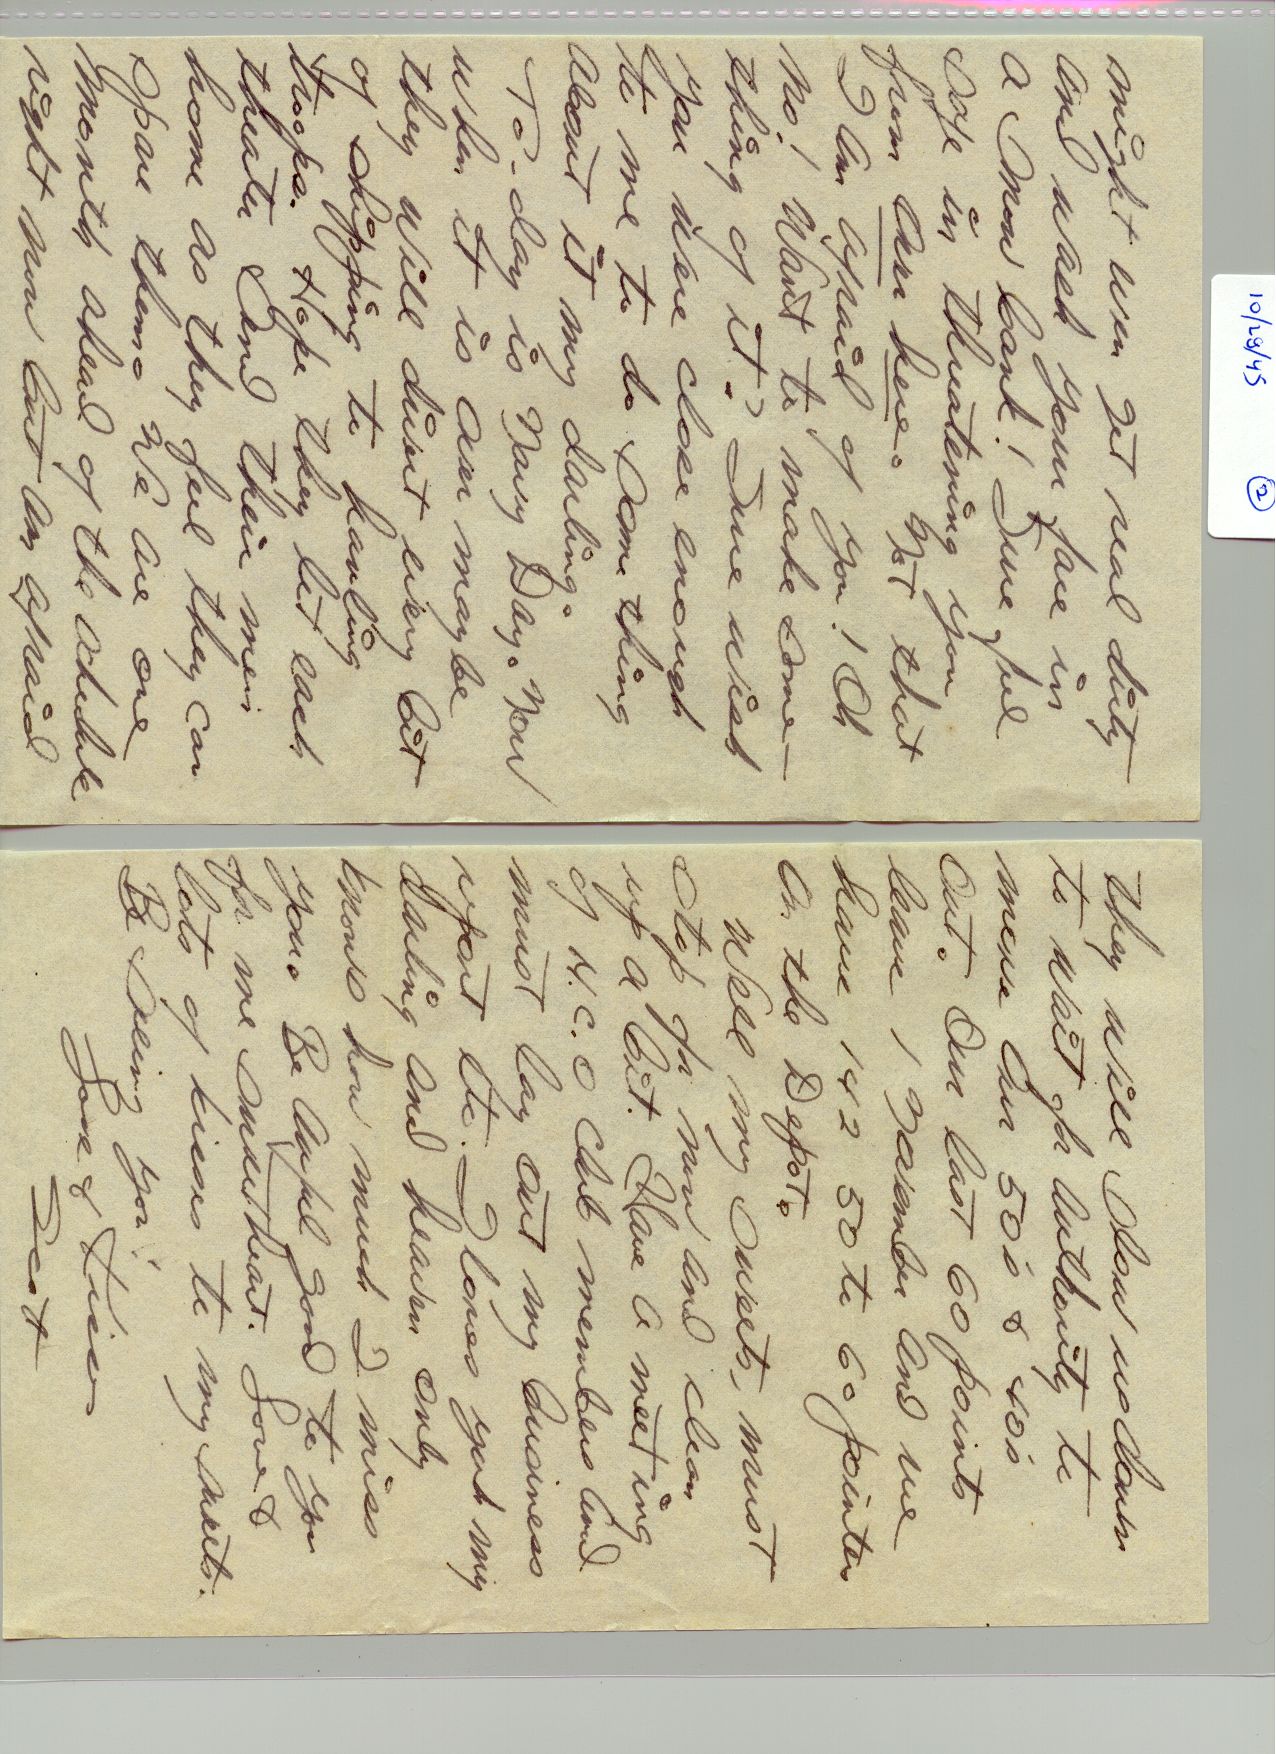 10/29/45 2
might even get real dirty
and wash your face in
a snow bank! Sure feel
safe in threatening you
from over here. Not that
I am afraid of you! Oh
no! Want to make some-
thing of it? Sure wish
you were close enough
to me to do something
about it my darling.
To-day is Navy Day. Now
when it is over maybe
they will divert every bit
of shipping to hauling
troops. Hope they let each
theater send their men
home as they feel they can
spare them. We are one
month ahead of the schedule
right now but am afraid
they will slow us down
to wait for authority to
move our 50's & 40's
out. Our last 60 points
leave 1 November and we
have 142 50 to 60 pointers
in the Depot.
Well my sweets, must
stop for now and clean
up a bit. Have a meeting
of N.C.O Club members and
must lay out my business
report etc. I loves you my
darling and heaven only
knows how much I miss
you. Be awful good to you
for me sweetheart. Love &
lots of kisses to my sweets.
Be seeing you!
Love & Kisses
Scott